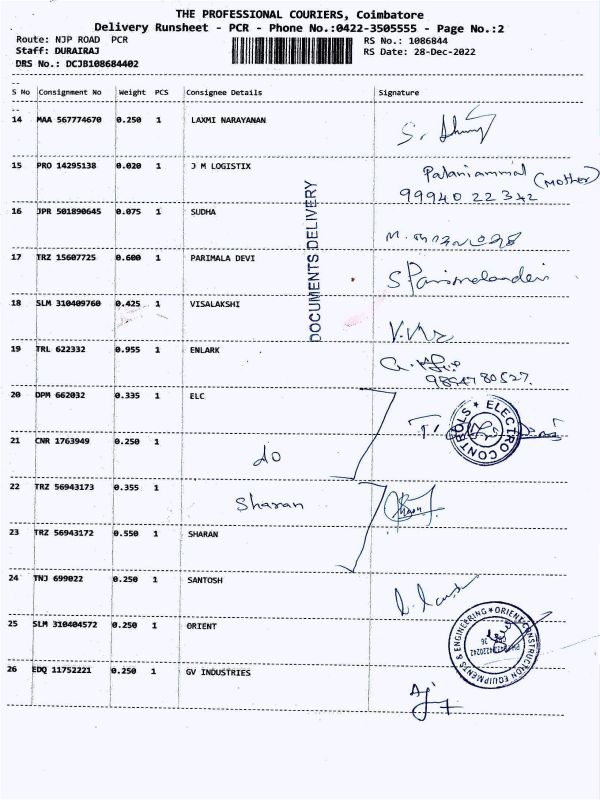 THE PROFESSIONAL COURIERS, Coimbatore
Delivery Runsheet - PCR - Phone No.:0422-3505555 - Page No.:2
Route: NJP ROAD PCR
RS No.: 1086844
Staff: DURAIRAJ
RS Date: 28-Dec-2022
DRS No.: DCJB108684402
S No Consignment No Weight PCS Consignee Details Signature
14 MAA 567774670 0.250 1 LAXMI NARAYANAN
15 PRO 14295138 0.020 1 J M LOGISTIX Palaniammal (Mother)
99940 22342
16 JPR 501890645 0.075 1 SUDHA
17 TRZ 15607725 0.600 1 PARIMALA DEVI S Parimalandevi
DOCUMENTS DELIVERY
18 SLM 310409760 0.425 1 VISALAKSHI
19 TRL 622332 0.955 1 ENLARK
9894780527.
20 DPM 662032 0.335 1 ELC
ELECTRO CONTROLS
21 CNR 1763949 0.250 1
do
22 TRZ 56943173 0.355 1 Sharan
23 TRZ 56943172 0.550 1 SHARAN
24 TNJ 699022 0.250 1 SANTOSH
25 SLM 310404572 0.250 1 ORIENT
ORIENT CONSTRUCTION EQUIPMENTS & ENGINEERING
26 EDQ 11752221 0.250 1 GV INDUSTRIES